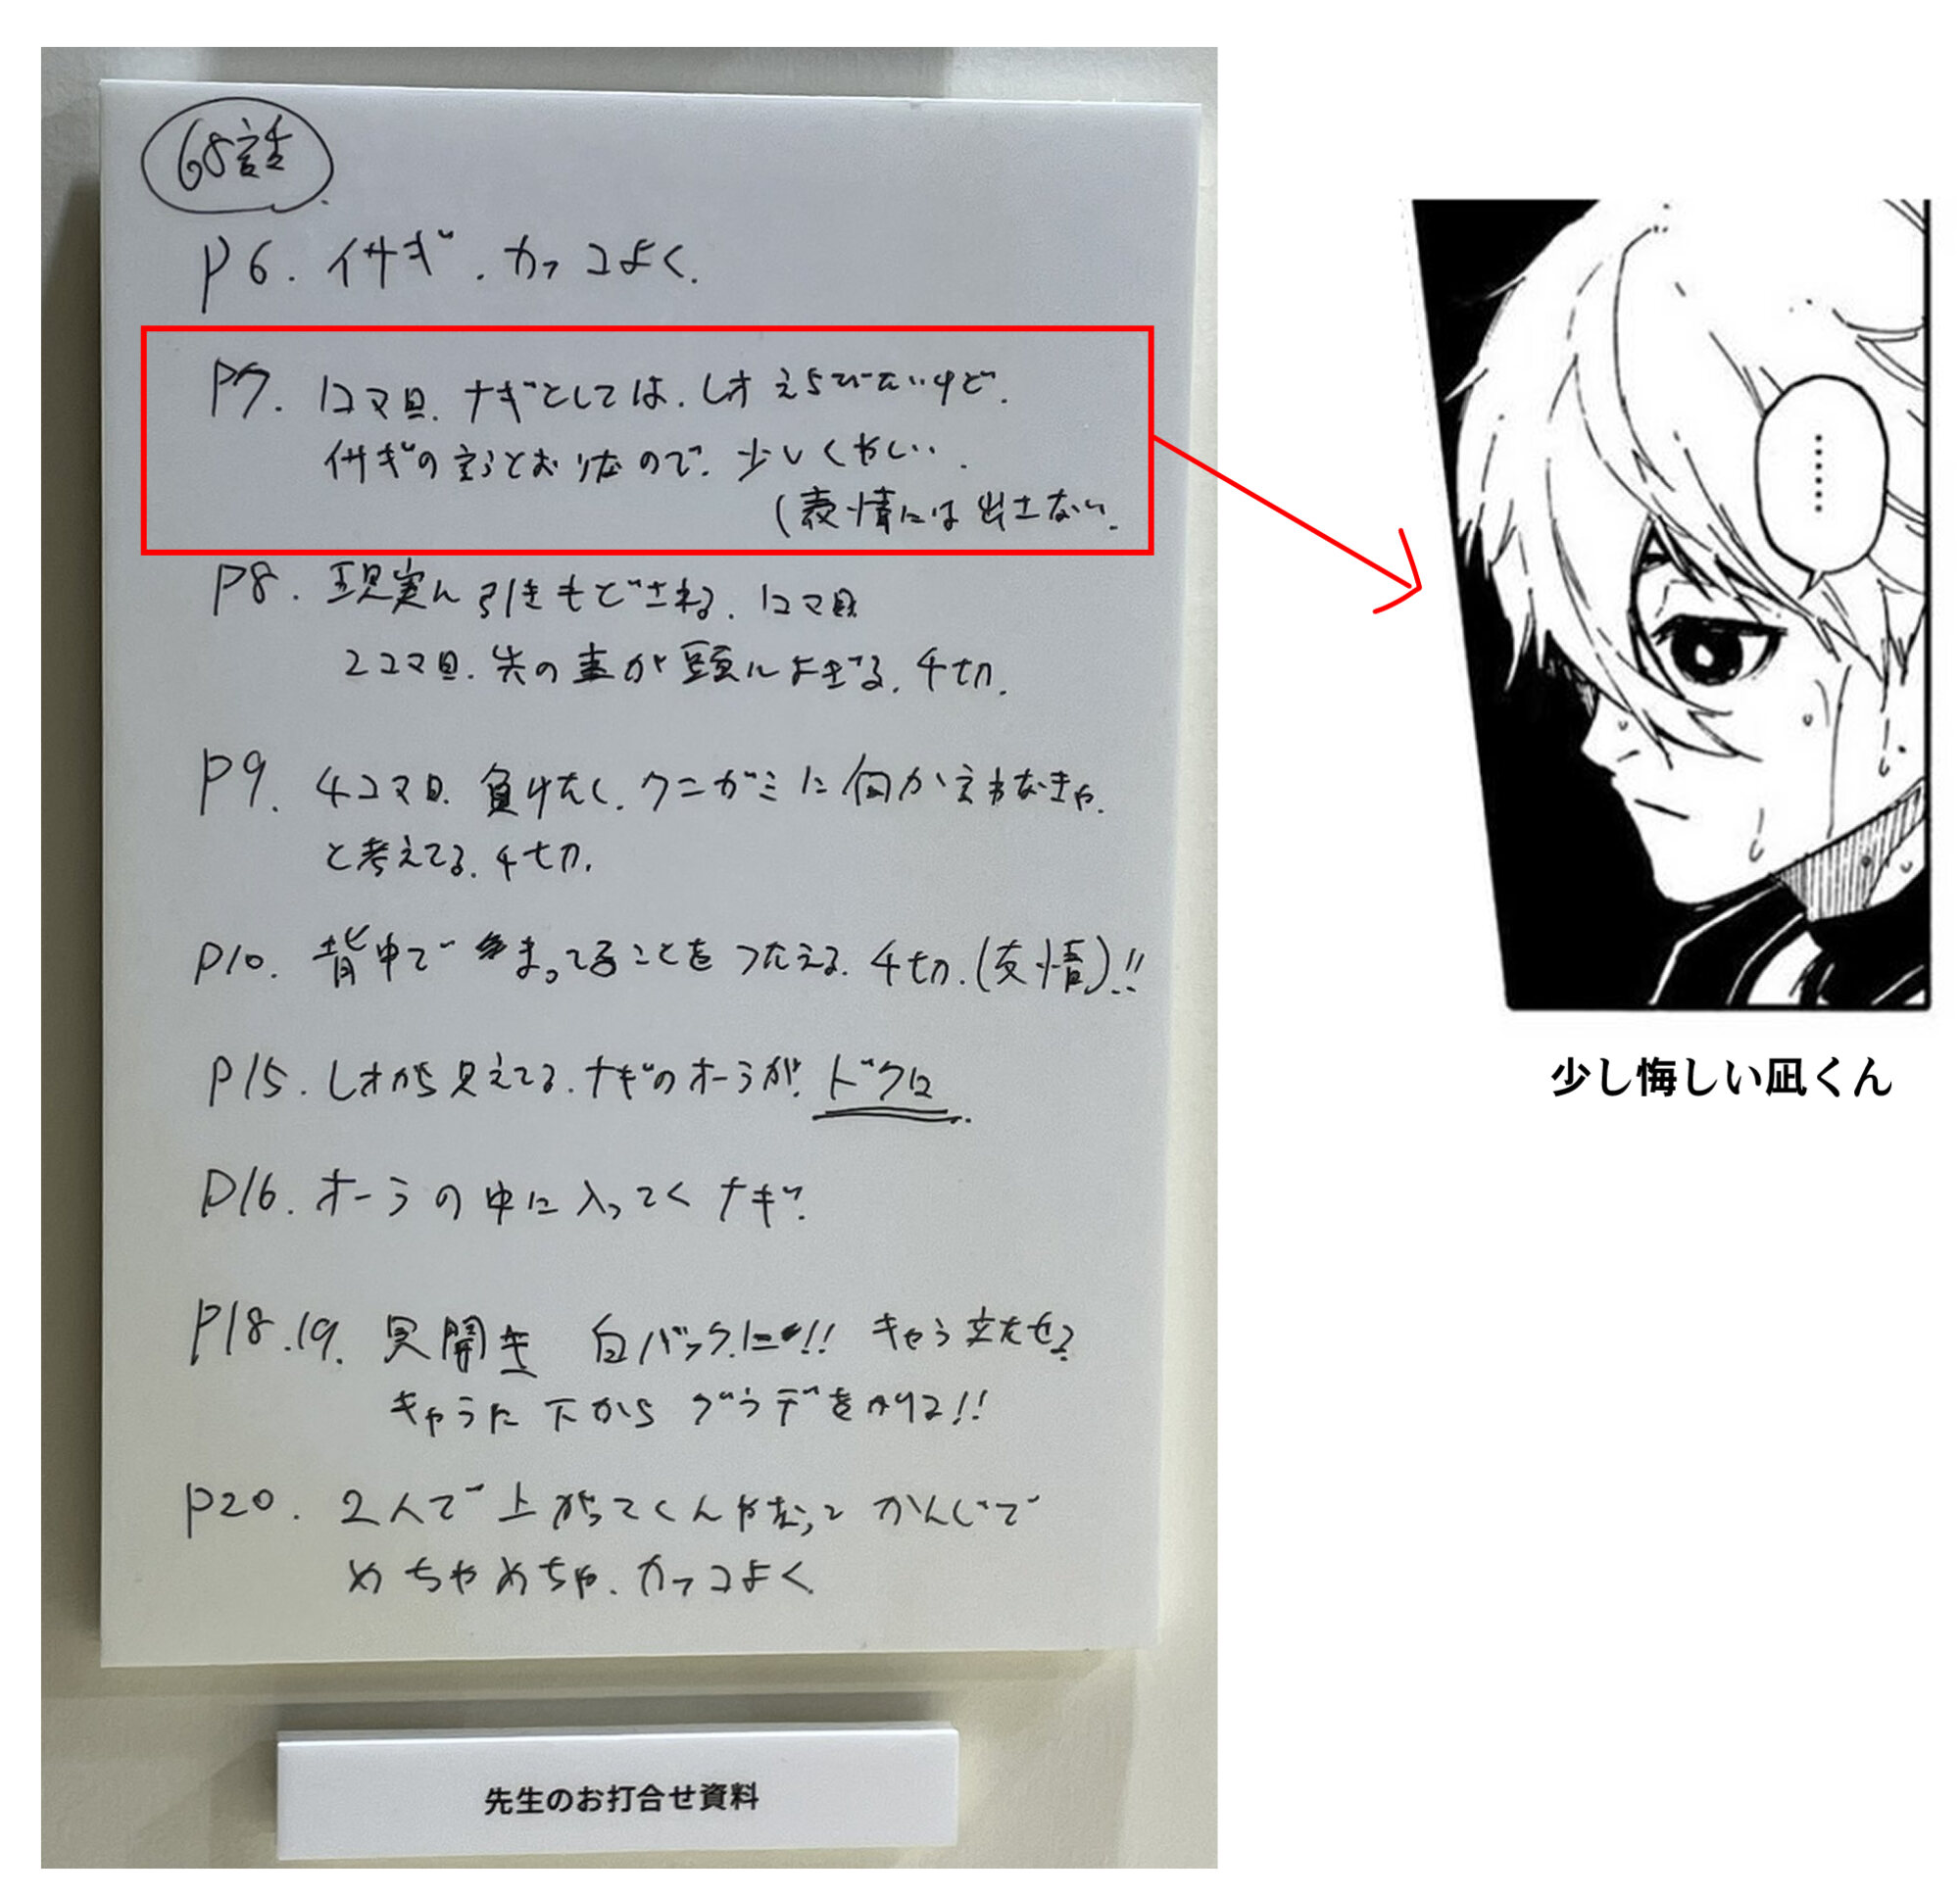 68話
P6. イサギ、カッコよく.
P7. 1コマ目. ナギとしては、レオえらびたいけど、
イサギの言うとおりなので、少しくやしい.
(表情には出さない.
P8. 現実に引きもどされる. 1コマ目
2コマ目. 先の事が頭によぎる. 千切.
P9. 4コマ目. 負けたく. クニガミに何か言わなきゃ.
と考えてる. 千切.
P10. 背中で まってることをつたえる. 千切. (友情)!!
P15. レオから見えてる. ナギのオーラが. ドクロ.
P16. オーラの中に入ってくナギ.
P18.19. 見開き 白バックに!! キャラ立たせる
キャラに下からグラデをかける!!
P20. 2人で上がってくんやなって かんじで
めちゃめちゃ. カッコよく
先生のお打合せ資料
……
少し悔しい凪くん